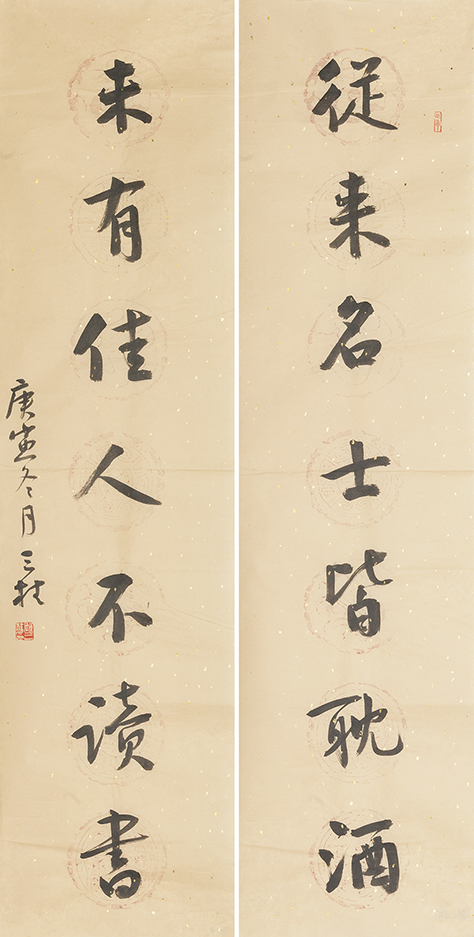 從来名士皆耽酒
未有佳人不读書
庚寅冬月 三桂